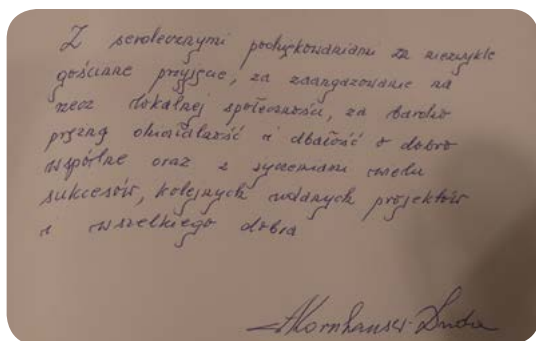 Z serdecznymi podziękowaniami za niezwykle
gościnne przyjęcie, za zaangażowanie na
rzecz lokalnej społeczności, za bardzo
prężną działalność i dbałość o dobro
wspólne oraz z życzeniami wielu
sukcesów, kolejnych udanych projektów
i wszelkiego dobra
AKornhauser-Duda